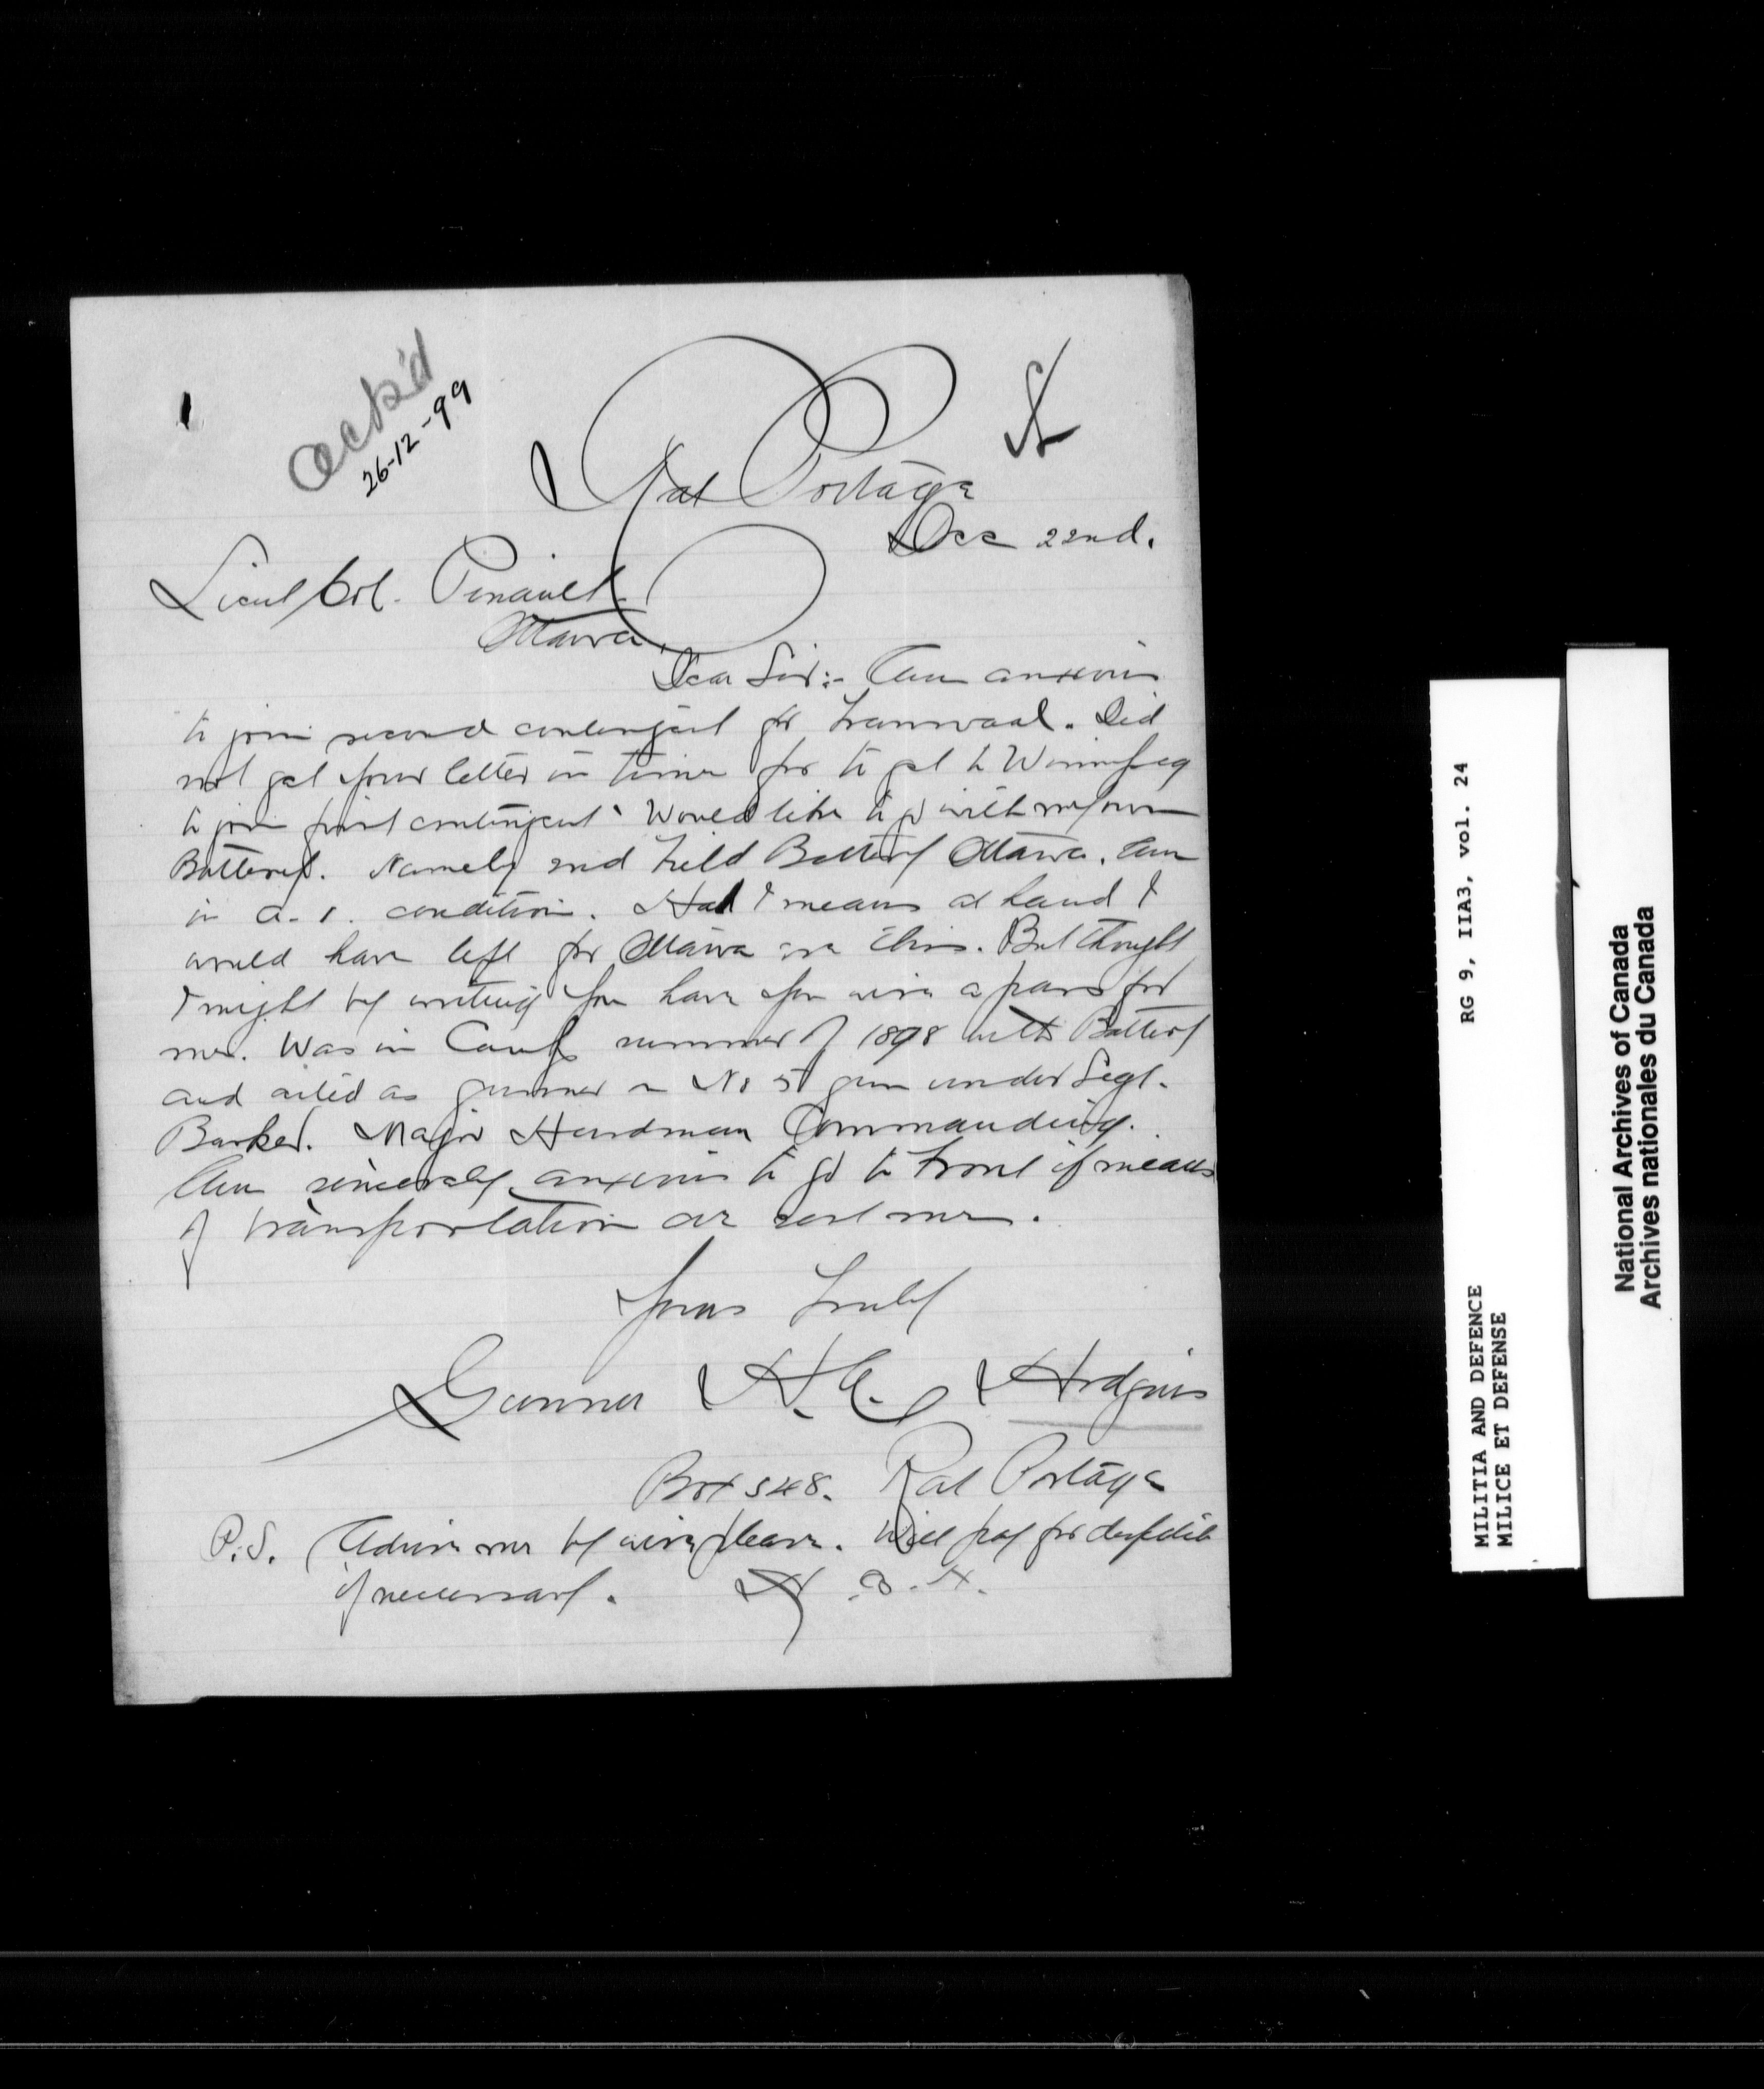 Ack'd
26-12-99
Rat Portage
Dec 22nd.
Lieut Col. Pinault
Ottawa.
Dear Sir:- Am anxious
to join second contingent for Transvaal. Did
not get your letter in time for to get to Winnipeg
to join first contingent. Would like to go with my own
Battery. Namely 2nd Field Battery Ottawa. Am
in A. 1. condition. Had I means at hand I
would have left for Ottawa ere this. But thought
I might by writing you have you wire a pass for
me. Was in Camp summer of 1898 with Battery
and acted as gunner on No 5 gun under Segt.
Barker. Major Hurdman Commanding.
Am sincerely anxious to go to Front if means
of transportation are sent me.
Yours Truly
Gunner H. C. Hodgins
Box 548. Rat Portage
P.S. Advise me by wire please. Will pay for despatch
if necessary.
RG 9, IIA3, vol. 24
MILITIA AND DEFENCE
MILICE ET DEFENSE
National Archives of Canada
Archives nationales du Canada